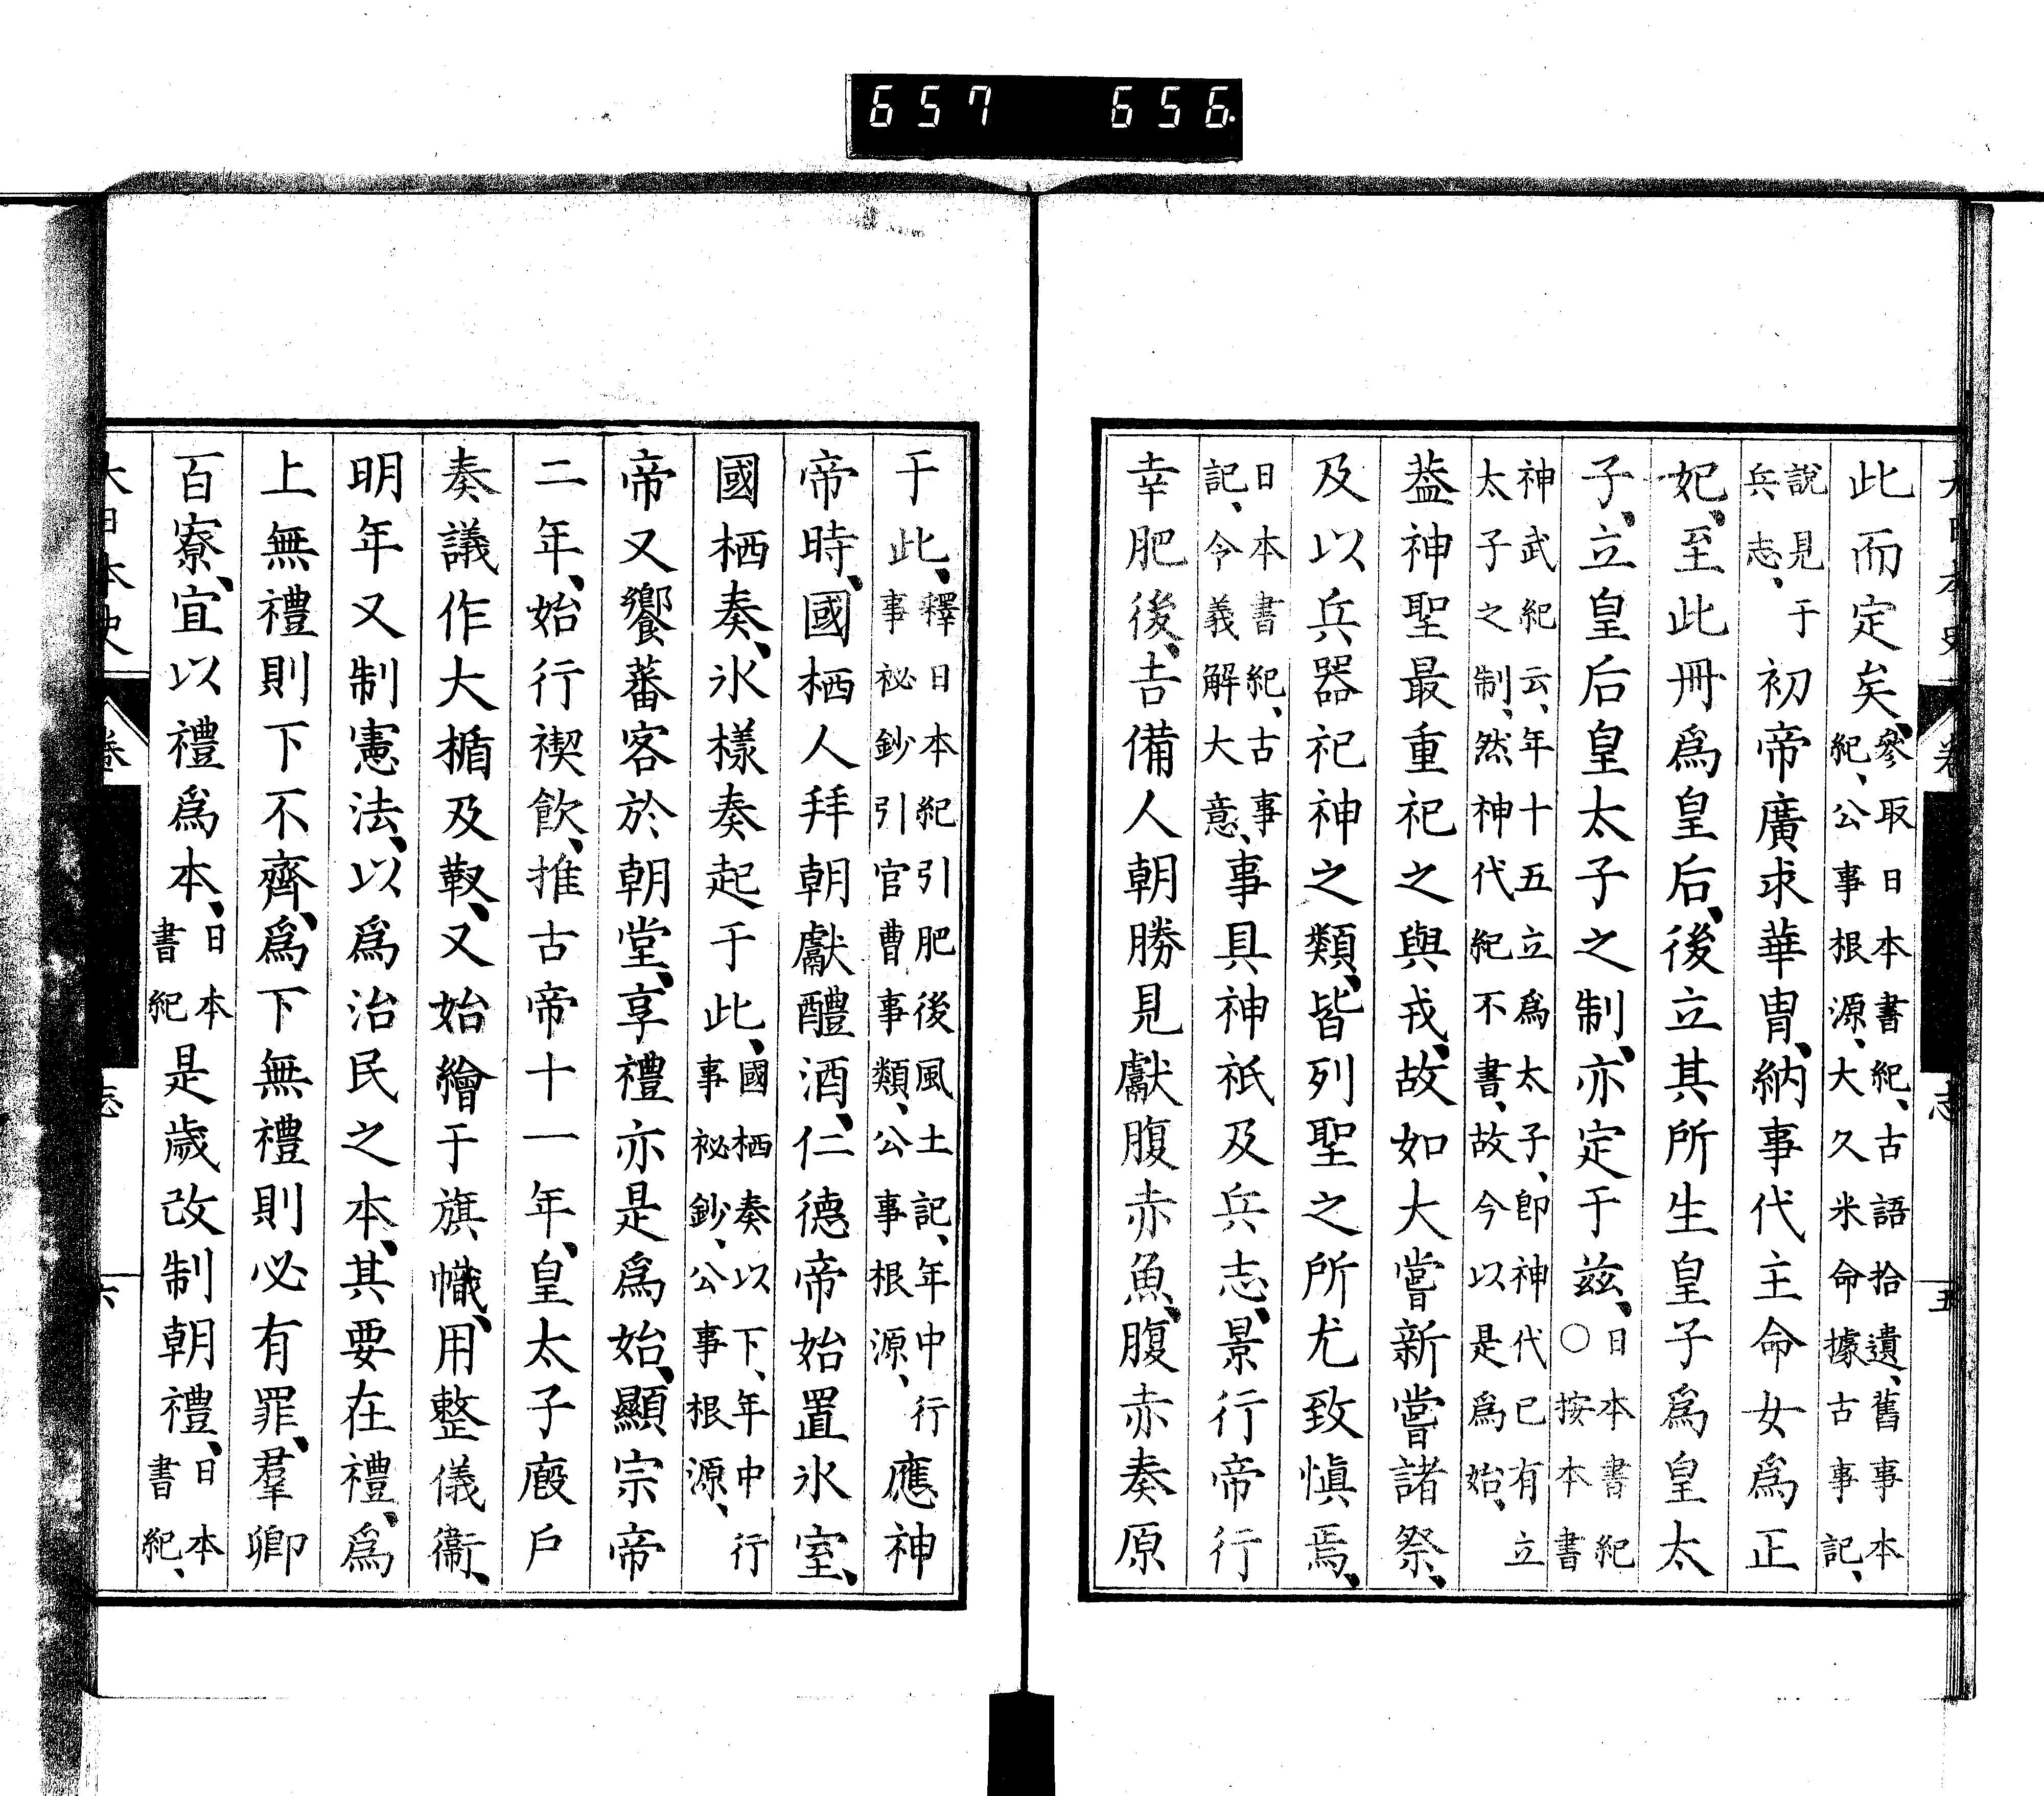 657 656
此而定矣、參取日本書紀、古語拾遺、舊事本
紀、公事根源、大久米命據古事記、
說見于
兵志、初帝廣求華冑、納事代主命女爲正
妃、至此冊爲皇后、後立其所生皇子爲皇太
子、立皇后皇太子之制、亦定于茲、日本書紀
○按本書
神武紀云、年十五立爲太子、卽神代已有立
太子之制、然神代紀不書、故今以是爲始、
葢神聖最重祀之與戎、故如大嘗新嘗諸祭、
及以兵器祀神之類、皆列聖之所尤致愼焉、
日本書紀、古事
記、令義解大意、事具神祇及兵志、景行帝行
幸肥後、吉備人朝勝見獻腹赤魚、腹赤奏原
于此、釋日本紀引肥後風土記、年中行
事祕鈔引官曹事類、公事根源、應神
帝時、國栖人拜朝獻醴酒、仁德帝始置氷室、
國栖奏、氷樣奏起于此、國栖奏以下、年中行
事祕鈔、公事根源、
帝又饗蕃客於朝堂、享禮亦是爲始、顯宗帝
二年、始行禊飮、推古帝十一年、皇太子廐戶
奏議作大楯及靫、又始繪于旗幟、用整儀衞、
明年又制憲法、以爲治民之本、其要在禮、爲
上無禮則下不齊、爲下無禮則必有罪、羣卿
百寮、宜以禮爲本、日本
書紀是歲改制朝禮、日本
書紀、